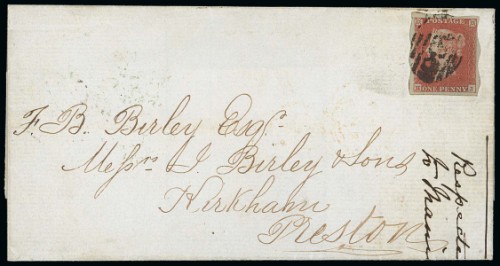 POSTAGE
ONE PENNY
F. B. Birley Esqr.
Messrs J. Birley & Sons
Kirkham
Preston